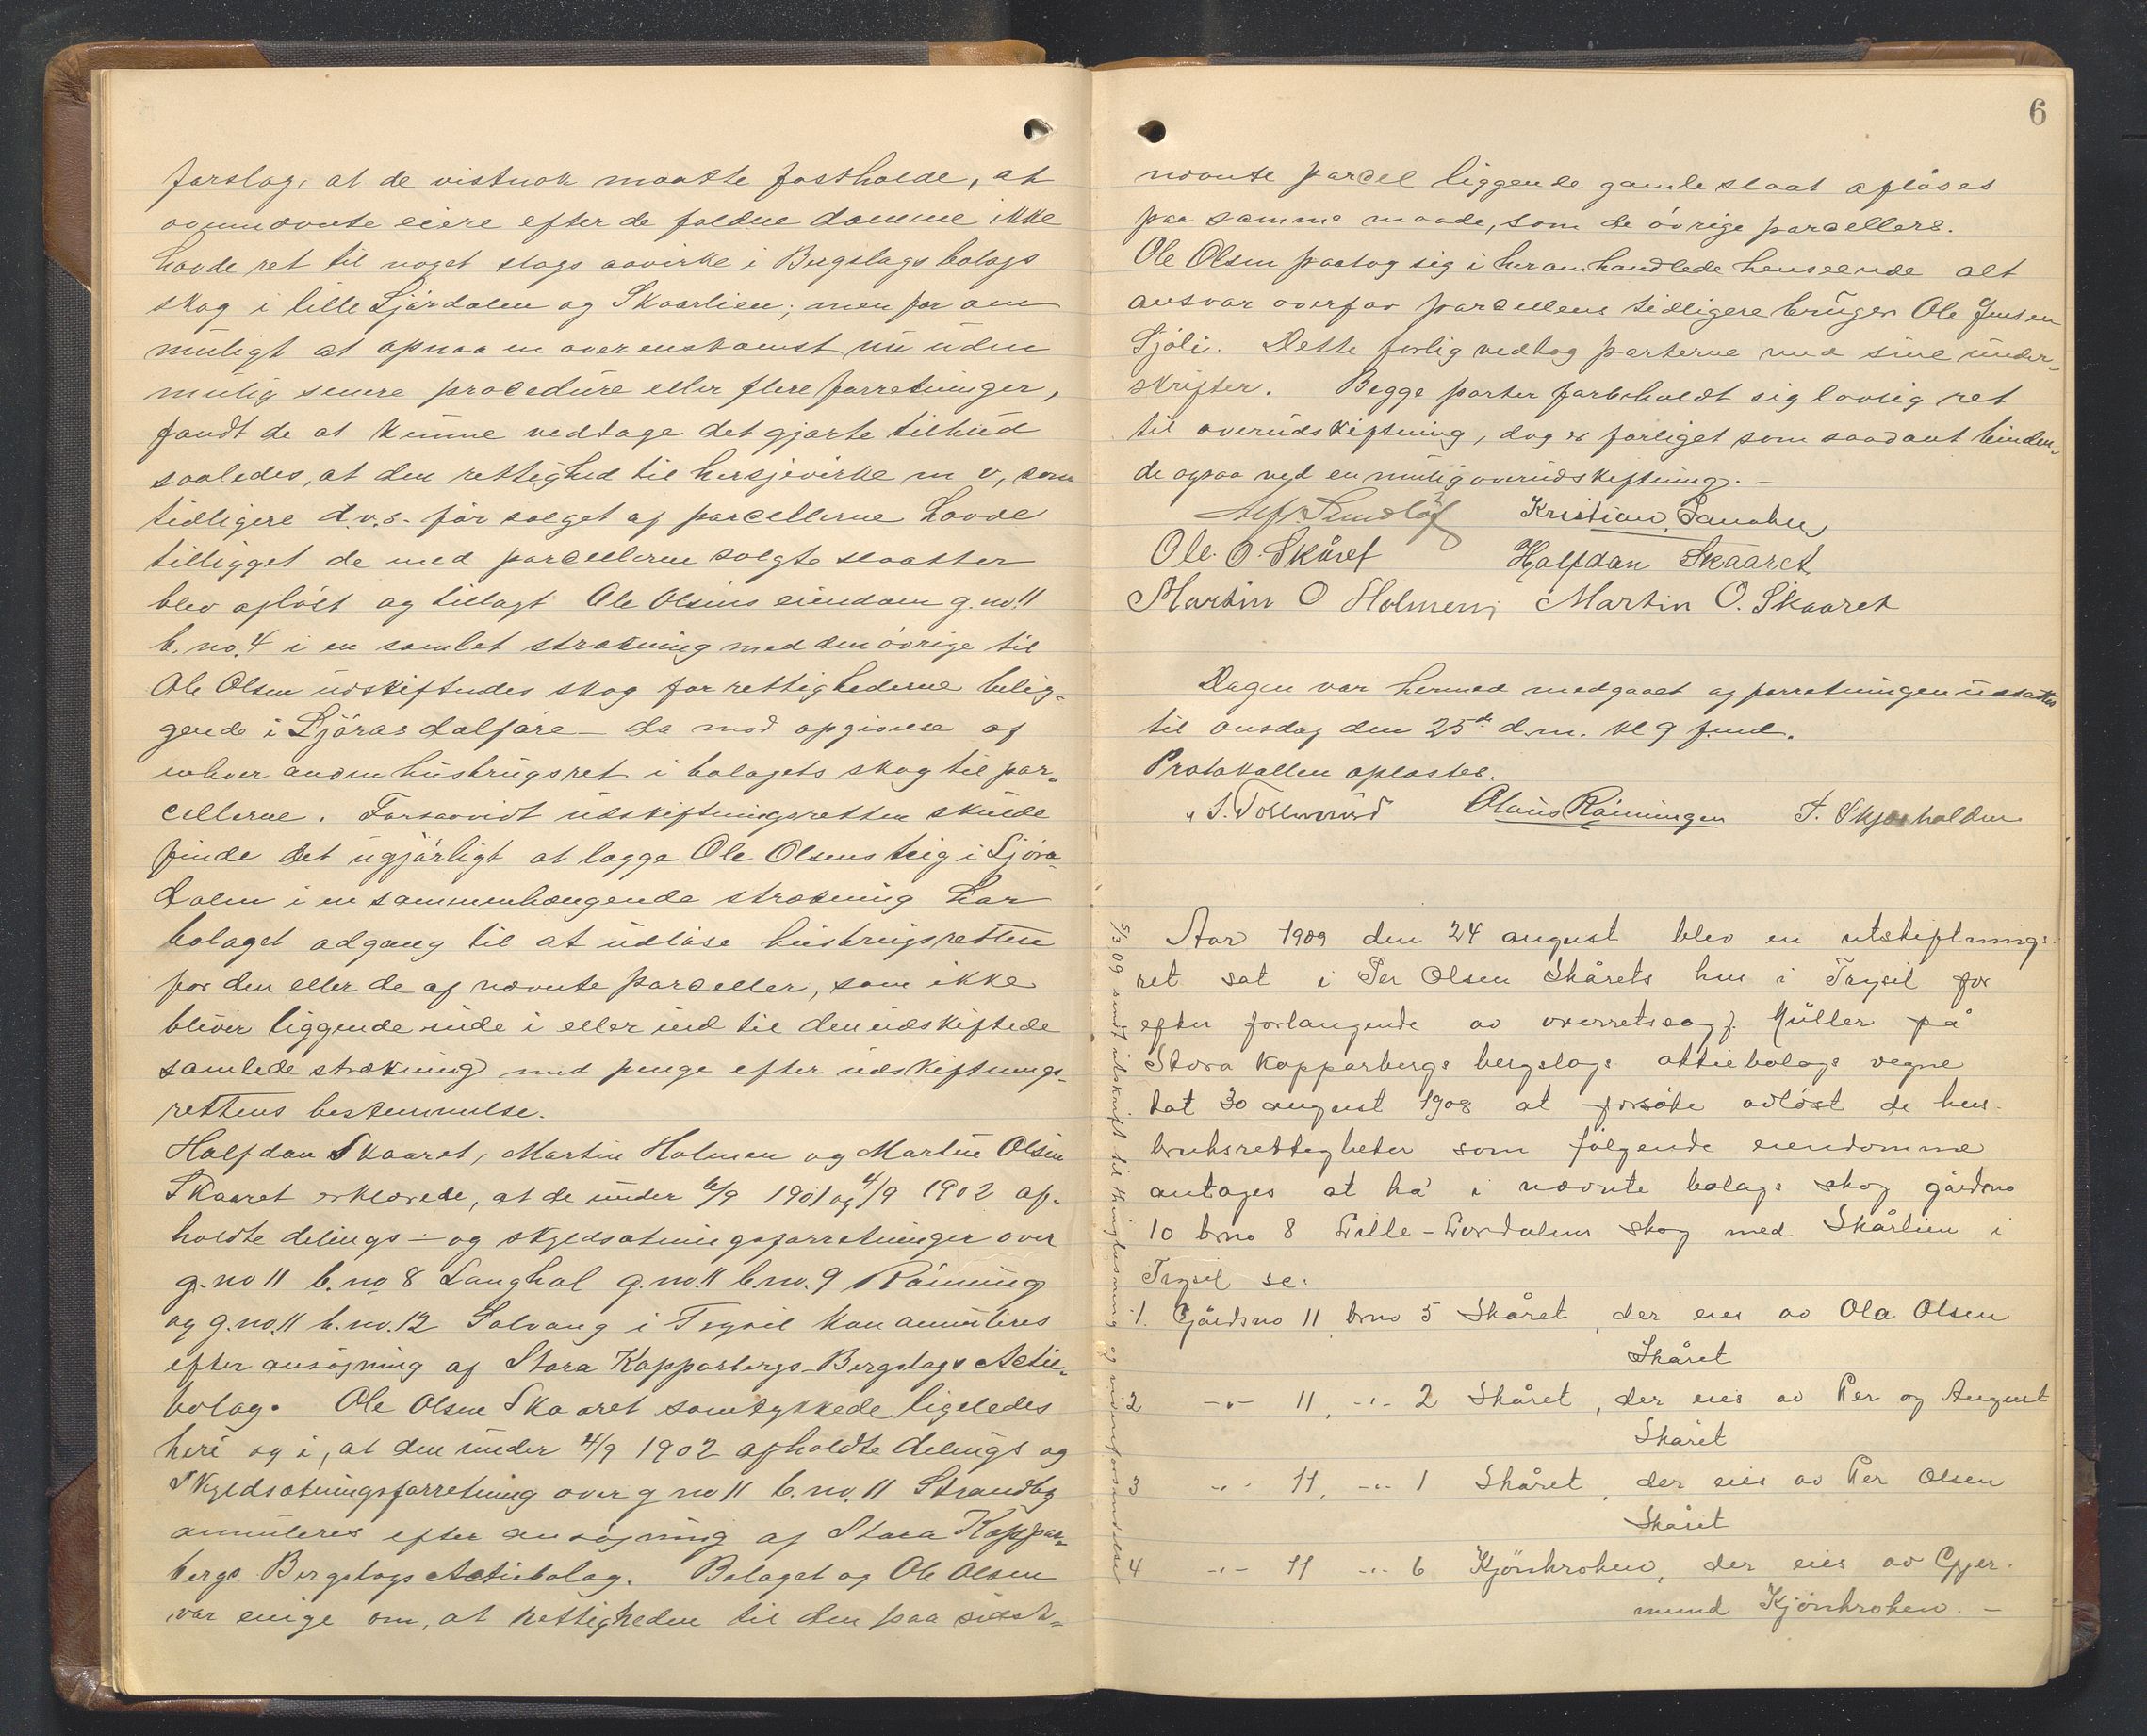 forslag, at de vistnok maatte fastholde, at
ovennævnte eiere efter de faldne domme ikke
havde ret til noget slags aavirke i Bergslags bolags
skog i lille Ljørdalen og Skaarlien; men for om
muligt at opnaa en overenskomst nu uden
mulig senere procedure eller flere forretninger,
fandt de at kunne vedtage det gjorte tilbud
saaledes, at den rettighed til hersjevirke m v, som
tidligere d.v.s. før salget af parcellerne havde
tilligget de med parcellerne solgte slaatter
blev afløst og tillagt Ole Olsens eiendom g.no. 11
b.no. 4 i en samlet strækning med den øvrige til
Ole Olsen udskiftendes skog for rettighederne belig-
gende i Ljøras dalføre – da mod opgivelse af
enhver anden husbrugsret i bolagets skog til par-
cellerne. Forsaavidt udskiftningsretten skulde
finde det ugjørligt at lægge Ole Olsens teig i Ljøra-
dalen i en sammenhængende strækning har
bolaget adgang til at udløse husbrugsretten
for den eller de af nævnte parceller, som ikke
bliver liggende inde i eller ind til den udskiftede
samlede strækning med penge efter udskiftnings-
rettens bestemmelse.
Halfdan Skaaret, Martin Holmen og Martin Olsen
Skaaret erklærede, at de under 6/9 1901 og 4/9 1902 af-
holdte delings – og skyldsætningsforretninger over
g.no 11 b.no 8 Langhol g.no. 11 b.no. 9 Rønning
og g.no. 11 b.no. 12 Solvang i Trysil kan annuleres
efter ansøgning af Stora Kopparbergs Bergslags Actie-
bolag. Ole Olsen Skaaret samtykkede ligeledes
heri og i, at den under 4/9 1902 afholdte delings og
skyldsætningsforretning over g no 11 b.no. 11 Strandby
annuleres efter ansøgning af Stora Koppar-
bergs Bergslags Actiebolag. Bolaget og Ole Olsen
var enige om, at rettigheden til den paa sidst-
6
nævnte parcel liggende gamle slaat afløses
paa samme maade, som de øvrige parcellers.
Ole Olsen paatog sig i heromhandlede henseende alt
ansvar overfor parcellens tidligere bruger Ole Jensen
Sjøli. Dette forlig vedtog parterne med sine under-
skrifter. Begge parter forbeholdt sig lovlig ret
til overudskiftning, dog er forliget som saadant binden-
de ogsaa ved en mulig overudskiftning. –
Kristian
Ole. O. Skåret Halfdan Skaaret
Martin O Holmen, Martin O. Skaaret
Dagen var hermed medgaaet og forretningen udsattes
til onsdag den 25de d.m. kl 9 fmd.
Protokollen oplæstes.
Olaus Rønningen
Aar 1909 den 24 august blev en utskiftnings-
ret sat i Per Olsen Skårets hus i Trysil for
efter forlangende av overretssagf. Müller på
Stora Kopparbergs bergslags aktiebolags vegne
dat 30 august 1908 at forsøke avløst de hus-
bruksrettigheter som følgende eiendomme
antages at ha i nævnte bolags skog gårdsno
10 brno 8 Lille-Lørdalens skog med Skårlien i
Trysil se:
1. Gårdsno 11, brno 5 Skåret, der eies av Ola Olsen
Skåret
2 -"- 11, -"- 2 Skåret, der eies av Per og August
Skåret
3 -"- 11, -"- 1 Skåret, der eies av Per Olsen
Skåret
4 -"- 11 -"- 6 Kjönkroken, der eies av Gjer-
mund Kjönkroken. –
5/3 09 sendt utskrift til thinglæsning og videre forsendelse